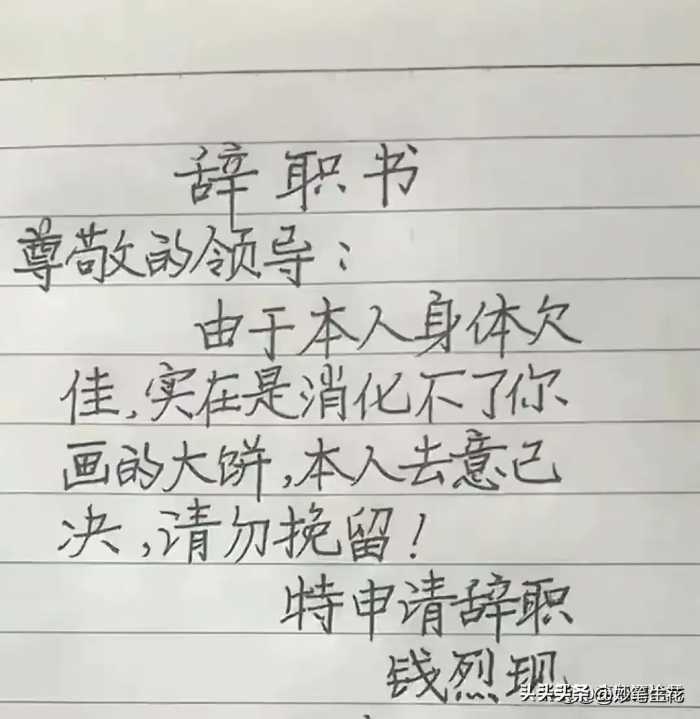 辞职书
尊敬的领导：
由于本人身体欠
佳，实在是消化不了你
画的大饼，本人去意已
决，请勿挽留！
特申请辞职
钱烈现
头条 @妙笔生花